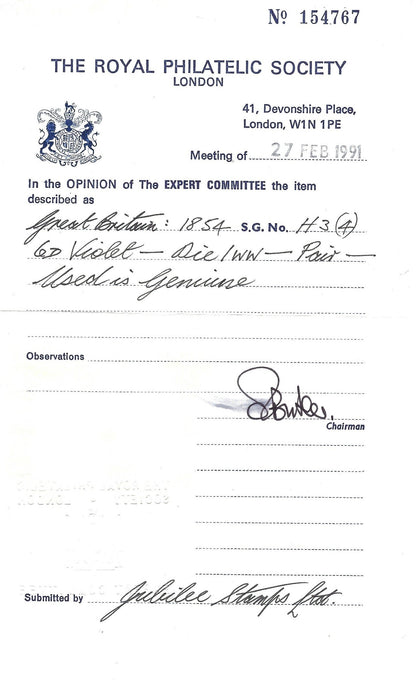 No 154767
THE ROYAL PHILATELIC SOCIETY
LONDON
41, Devonshire Place,
London, W1N 1PE
Meeting of 27 FEB 1991
In the OPINION of The EXPERT COMMITTEE the item
described as
Great Britain: 1854 S.G. No. H3 (4)
6D Violet — Die I WW — Pair —
Used is Genuine
Observations
Chairman
Submitted by Jubilee Stamps Ltd.